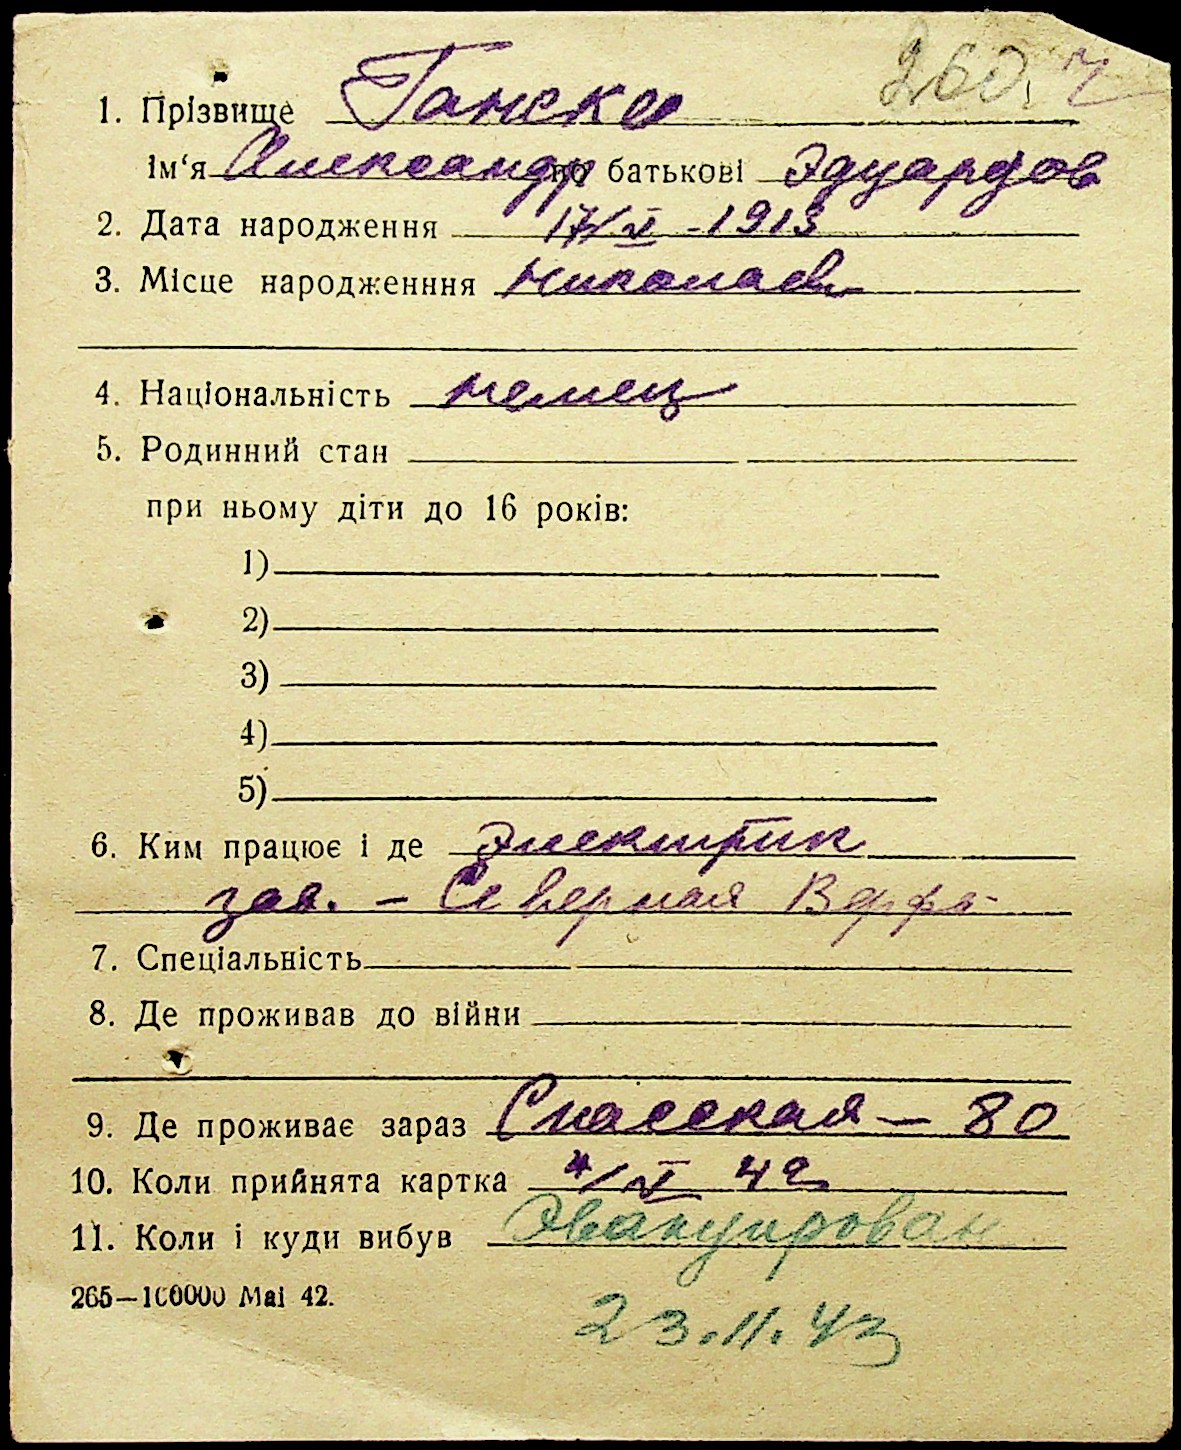 260. ч
1. Прізвище Ганске
Ім'я Александр по батькові Эдуардов
2. Дата народження 17/V - 1913
3. Місце народженння Николаев
4. Національність немец
5. Родинний стан
при ньому діти до 16 років:
1)
2)
3)
4)
5)
6. Ким працює і де Электрик
зав. - Северная Верфь
7. Спеціальність
8. Де проживав до війни
9. Де проживає зараз Спасская - 80
10. Коли прийнята картка 4/V 42
11. Коли і куди вибув Эвакуирован
265—100000 Mai 42.
23.11.43